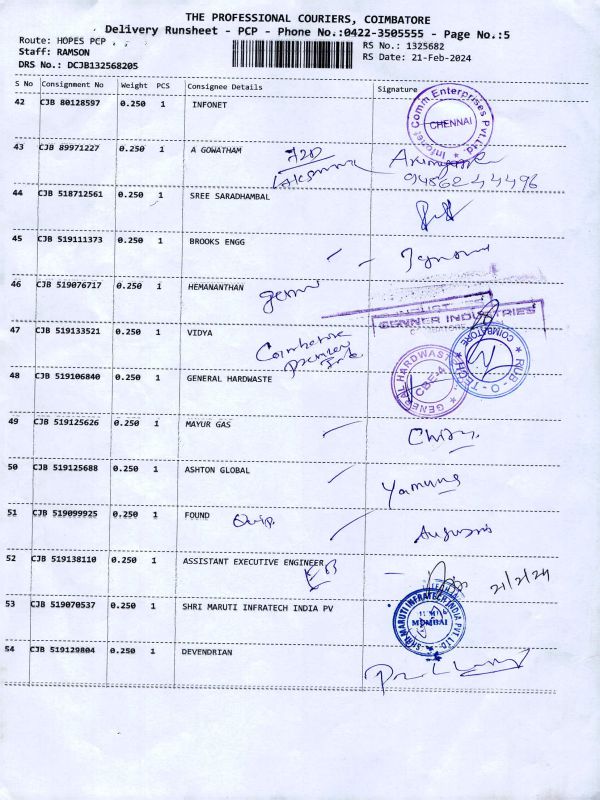 THE PROFESSIONAL COURIERS, COIMBATORE
Delivery Runsheet - PCP - Phone No.:0422-3505555 - Page No.:5
Route: HOPES PCP
RS No.: 1325682
Staff: RAMSON
RS Date: 21-Feb-2024
DRS No.: DCJB132568205
S No Consignment No Weight PCS Consignee Details Signature
42 CJB 80128597 0.250 1 INFONET
Infonet Comm Enterprises Pvt Ltd
CHENNAI
43 CJB 89971227 0.250 1 A GOWATHAM
9486244496
44 CJB 518712561 0.250 1 SREE SARADHAMBAL
45 CJB 519111373 0.250 1 BROOKS ENGG
46 CJB 519076717 0.250 1 HEMANANTHAN
INDUSTRIES
47 CJB 519133521 0.250 1 VIDYA
Coimbatore
RUB-O-TECH
COIMBATORE
48 CJB 519106840 0.250 1 GENERAL HARDWASTE
GENERAL HARDWASTE
CBE-4
49 CJB 519125626 0.250 1 MAYUR GAS
50 CJB 519125688 0.250 1 ASHTON GLOBAL
Yamuna
51 CJB 519099925 0.250 1 FOUND
52 CJB 519138110 0.250 1 ASSISTANT EXECUTIVE ENGINEER
EB
21/2/24
53 CJB 519070537 0.250 1 SHRI MARUTI INFRATECH INDIA PV
SHRI MARUTI INFRATECH INDIA PVT LTD.
MUMBAI
54 CJB 519129804 0.250 1 DEVENDRIAN